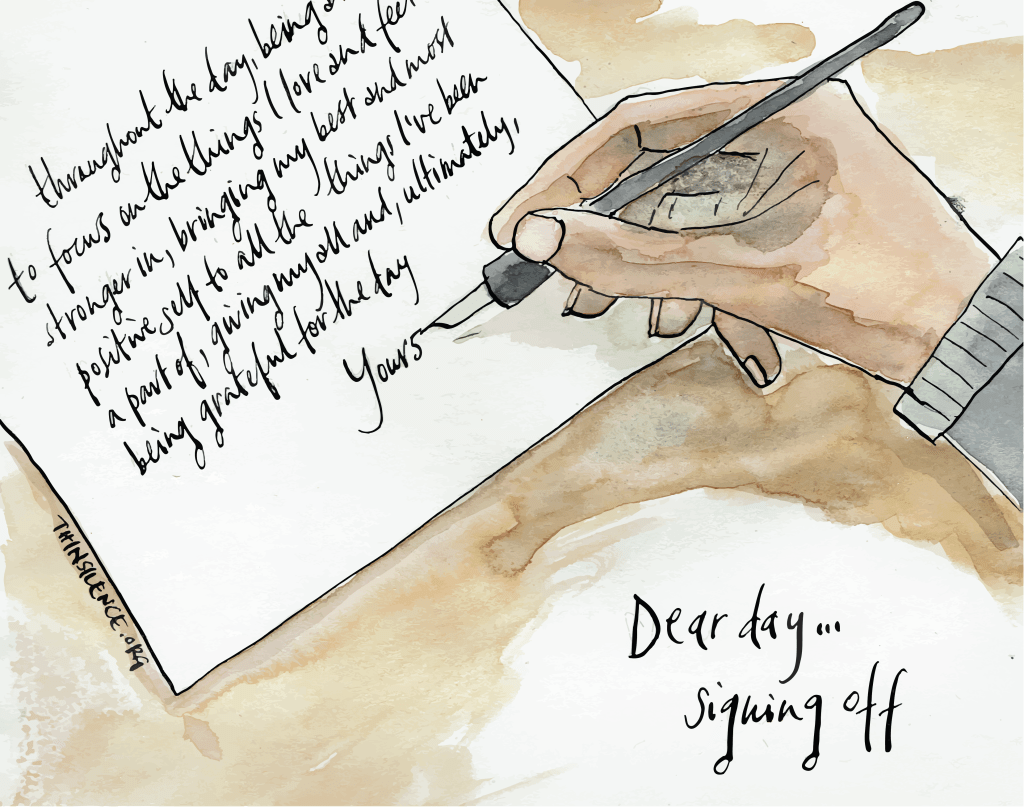 throughout the day, being
to focus on the things I love and feel
stronger in, bringing my best and most
positive self to all the things I've been
a part of, giving my all and, ultimately,
being grateful for the day
Yours
THINSILENCE.ORG
Dear day...
signing off